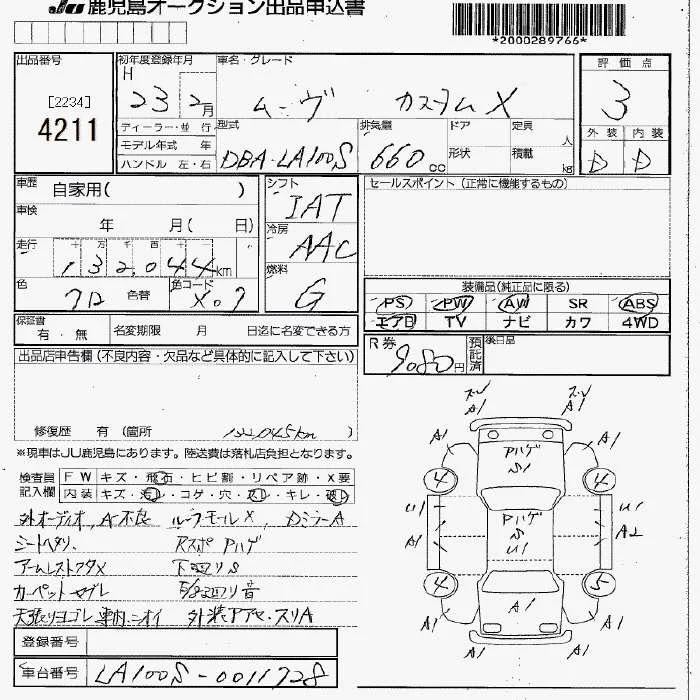 JU鹿児島オークション出品申込書
*2000289766*
出品番号
[2234]
4211
初年度登録年月
H
23 2月
車名・グレード
ムーヴ カスタムX
評価点
3
外装 内装
D D
ディーラー・並 行
モデル年式 年
ハンドル 左・右
型式
DBA-LA100S
排気量
660cc
ドア
形状
定員
人
積載
kg
車歴
自家用( )
車検
年 月( 日)
走行
十 万 千 百 十 一
132,044km
色
クロ 色替
色コード
X07
シフト
IAT
冷房
AAC
燃料
G
セールスポイント(正常に機能するもの)
装備品(純正品に限る)
PS PW AW SR ABS
エアB TV ナビ カワ 4WD
保証書
有・無
名変期限 月 日迄に名変できる方
R券
9080円
預託済
後日品
出品店申告欄(不良内容・欠品など具体的に記入して下さい)
修復歴 有(箇所 132045km )
※現車はJU鹿児島にあります。陸送費は落札店負担となります。
検査員
記入欄
FW キズ・飛石・ヒビ割・リペア跡・X要
内装 キズ・汚レ・コゲ・穴・スレ・キレ・破レ
外オーディオ,A不良 ルーフモールX, DミラーA
シートヘタリ, Rスポ Pハゲ
アームレストフタX 下回りS
カーペットマグレ 足廻り音
天張りヨゴレ 車内ニオイ 外装PアセスリA
登録番号
車台番号 LA100S-0011728
スレ スレ
A1 A1
A1 Pハゲ A1
S1
4 4
U1 Pハゲ U1
A1 S A2
U1
4 5
A1 A1 A1
A1 A1